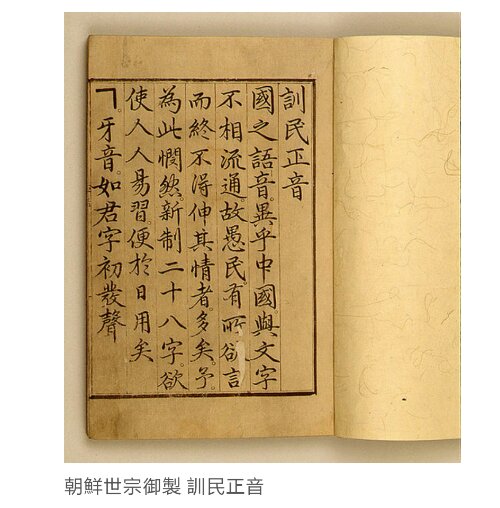 訓民正音
國之語音。異乎中國。與文字
不相流通。故愚民。有所欲言
而終不得伸其情者。多矣。予。
為此憫然。新制二十八字。欲
使人人易習。便於日用矣
ㄱ。牙音。如君字初發聲
朝鮮世宗御製 訓民正音